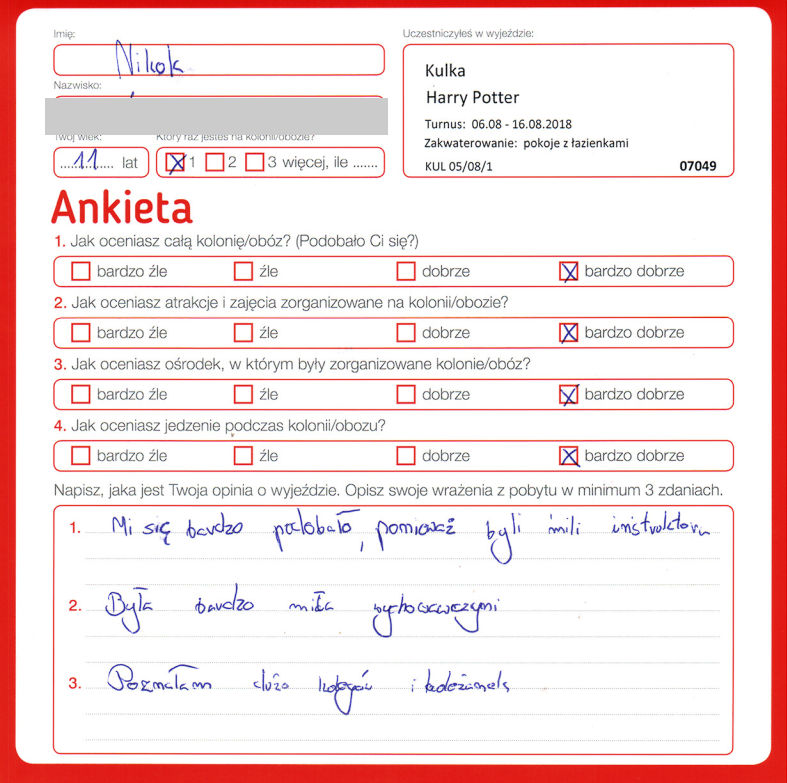 Imię:
Nikola
Nazwisko:
Twój wiek:
Który raz jesteś na kolonii/obozie?
11 lat
1 2 3 więcej, ile .......
Uczestniczyłeś w wyjeździe:
Kulka
Harry Potter
Turnus: 06.08 - 16.08.2018
Zakwaterowanie: pokoje z łazienkami
KUL 05/08/1 07049
Ankieta
1. Jak oceniasz całą kolonię/obóz? (Podobało Ci się?)
bardzo źle źle dobrze bardzo dobrze
2. Jak oceniasz atrakcje i zajęcia zorganizowane na kolonii/obozie?
bardzo źle źle dobrze bardzo dobrze
3. Jak oceniasz ośrodek, w którym były zorganizowane kolonie/obóz?
bardzo źle źle dobrze bardzo dobrze
4. Jak oceniasz jedzenie podczas kolonii/obozu?
bardzo źle źle dobrze bardzo dobrze
Napisz, jaka jest Twoja opinia o wyjeździe. Opisz swoje wrażenia z pobytu w minimum 3 zdaniach.
1. Mi się bardzo podobało, pomieważ byli mili
2. Była bardzo miła
3. Poznałam dużo kolegów i